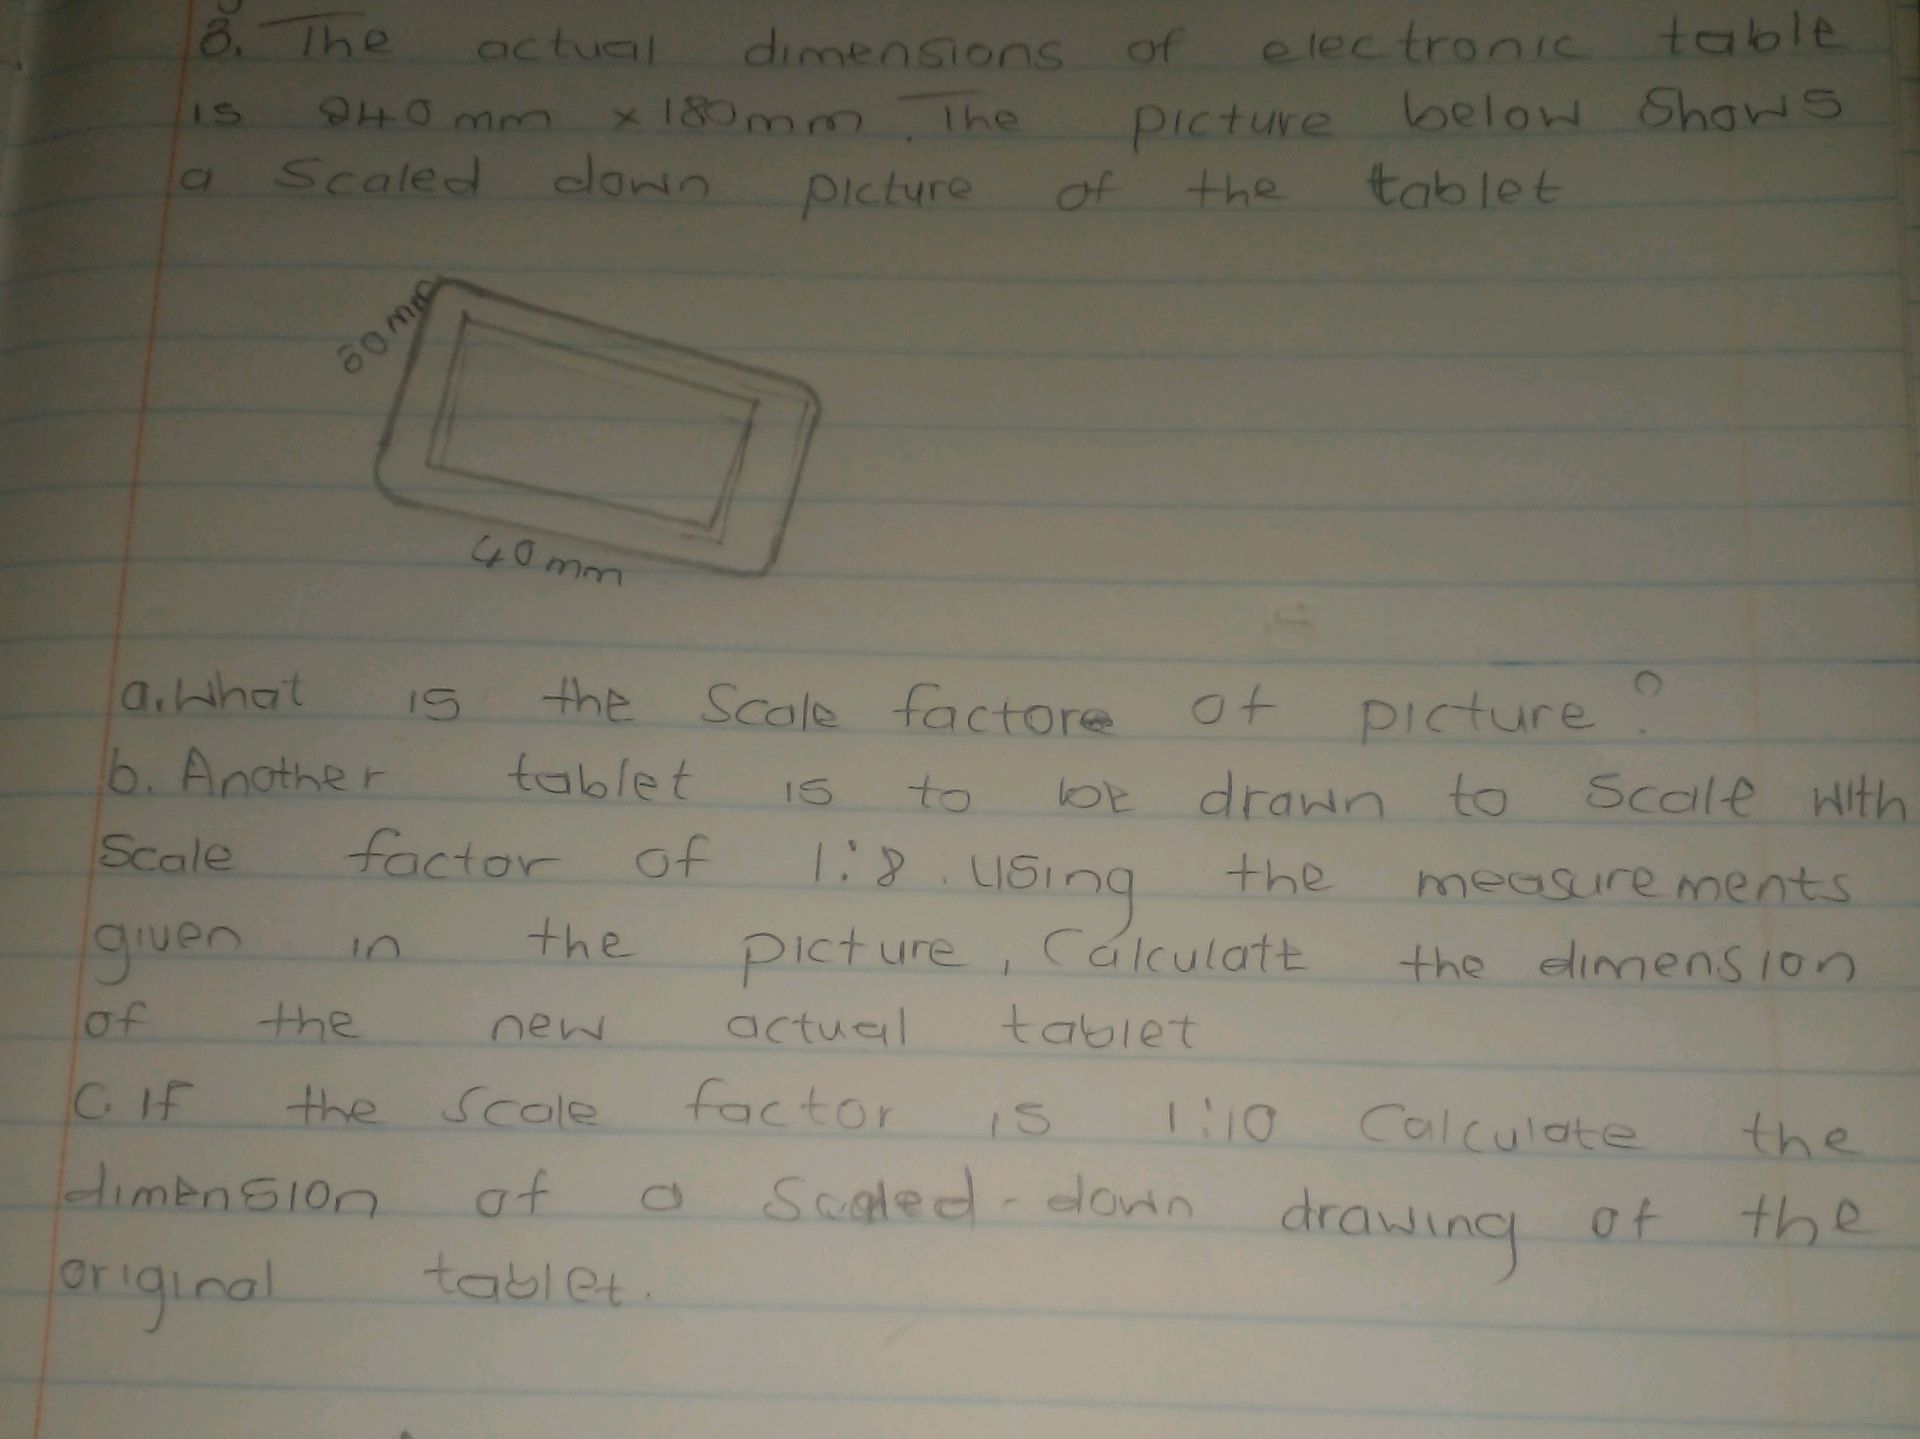 8. The actual dimensions of electronic table
is 240mm x 180mm. The picture below shows
a Scaled down picture of the tablet
mm
40mm
a. What is the Scale factore of picture?
b. Another tablet is to be drawn to Scale with
Scale factor of 1:8. Using the measurements
given in the picture, Calculate the dimension
of the new actual tablet
C. If the Scale factor is 1:10 Calculate the
dimension of a Scaled-down drawing of the
original tablet.